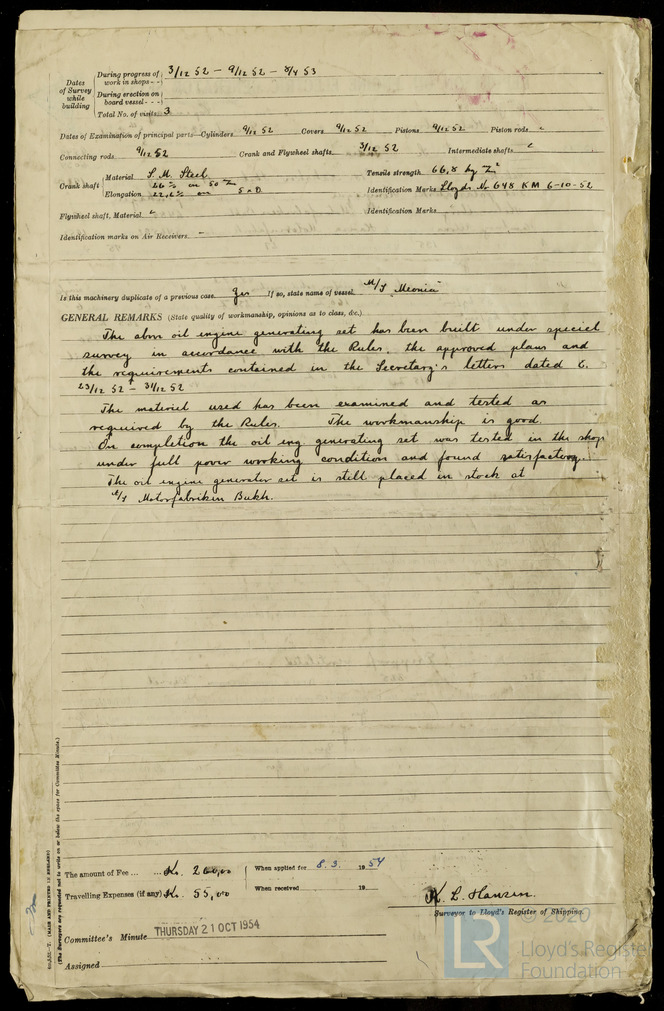 Dates of Survey while building
During progress of work in shops - - 3/12 52 – 9/12 52 – 8/4 53
During erection on board vessel - - -
Total No. of visits 3
Dates of Examination of principal parts—Cylinders 9/12 52 Covers 9/12 52 Pistons 9/12 52 Piston rods -
Connecting rods 9/12 52 Crank and Flywheel shafts 3/12 52 Intermediate shafts
Crank shaft Material S. M. Steel Tensile strength 66,8 kg
Elongation 5 x D Identification Marks Lloyds No 648 KM 6-10-52
Flywheel shaft, Material - Identification Marks
Identification marks on Air Receivers -
Is this machinery duplicate of a previous case yes If so, state name of vessel M/S "Meonia"
GENERAL REMARKS (State quality of workmanship, opinions as to class, &c.)
The abov oil engine generating set has been built under special
survey in accordance with the Rules, the approved plans and
the requirements contained in the Secretary's letters dated E.
23/12 52 + 31/12 52
The material used has been examined and tested as
required by the Rules. The workmanship is good.
On completion the oil eng generating set was tested in the shop
under full power working condition and found satisfactory.
The oil engine generator set is still placed in stock at
A/S Motorfabriken Bukh.
The amount of Fee ... Kr. 200,00 When applied for 8.3. 1954
Travelling Expenses (if any) Kr. 55,00 When received 19
K. L. Hansen.
Surveyor to Lloyd's Register of Shipping.
Committee's Minute THURSDAY 21 OCT 1954
Assigned
(MADE AND PRINTED IN ENGLAND)
(The Surveyors are requested not to write on or below the space for Committee Minute.)
© 2020
LR
Lloyd's Register
Foundation